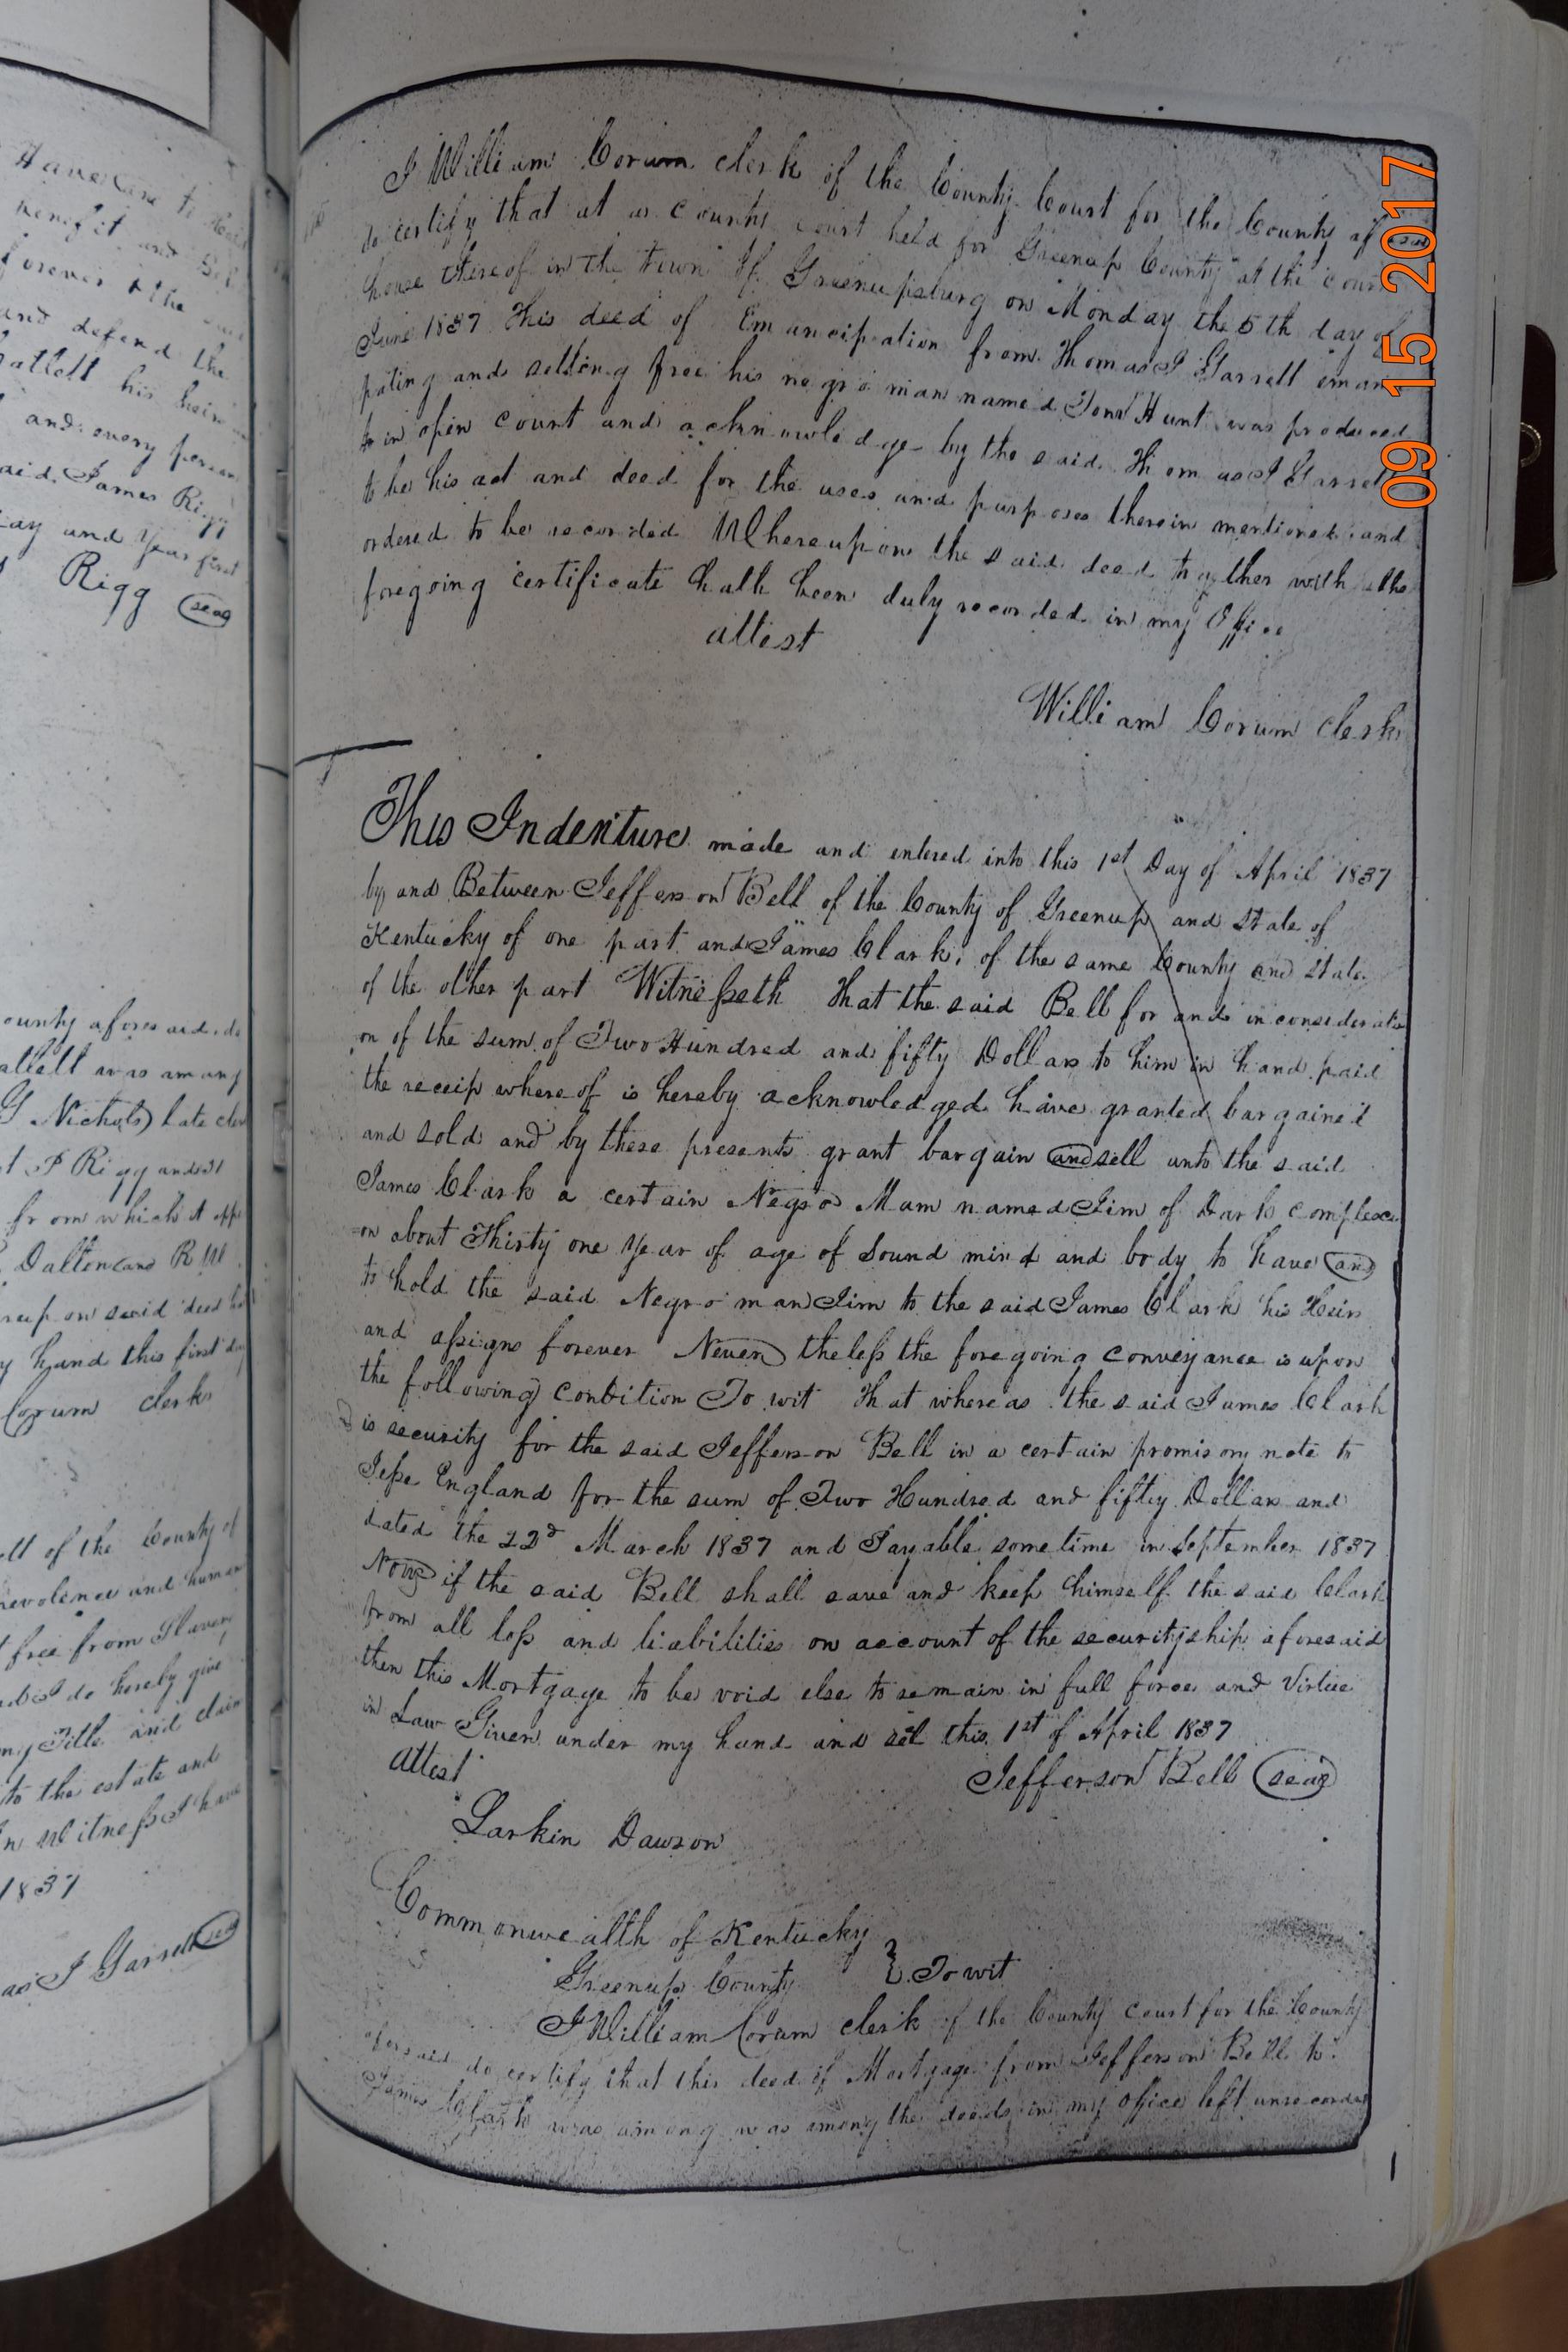 Have
benefit and
forever & the
and defend the
his heirs
and every person
said James Rigg
day and year first
Rigg (seal)
County aforesaid do
was among
G Nichols late clerk
P Rigg and
from which it
Dalton and R W
said deed
hand this first
Corum clerk
of the County of
benevolence and
free from Slavery
do hereby give
my Title and claim
to the estate and
In Witness I have
1837
as J Garrett (seal)
I William Corum clerk of the County Court for the County
do certify that at a County court held for Greenup County at the Court
house thereof in the town of Greenupsburg on Monday the 5th day of
June 1837 This deed of Emancipation from Thomas J Garrett eman
pating and setting free his negro man named Tom Hunt was produced
in open court and acknowledge by the said Thomas J Garrett
to be his act and deed for the uses and purposes therein mentioned and
ordered to be recorded Whereupon the said deed together with the
foregoing certificate hath been duly recorded in my Office
attest
William Corum clerk
This Indenture made and entered into this 1st Day of April 1837
by and Between Jefferson Bell of the County of Greenup and State of
Kentucky of one part and James Clark, of the same County and State
of the other part Witnesseth That the said Bell for and in consideratio
on of the sum of Two Hundred and fifty Dollars to him in hand paid
the receip whereof is hereby acknowledged have granted bargained
and sold and by these presents grant bargain and sell unto the said
James Clark a certain Negro Mam named Jim of Dark complexi
on about Thirty one Year of age of Sound mind and body to have and
to hold the said Negro man Jim to the said James Clark his Heirs
and assigns forever Never theless the foregoing conveyance is upon
the following condition To wit That whereas the said James Clark
is security for the said Jefferson Bell in a certain promisory note to
Jesse England for the sum of Two Hundred and fifty Dollars and
dated the 22d March 1837 and Payable sometime in September 1837
Now if the said Bell shall save and keep himself the said Clark
from all loss and liabilities on account of the securityship aforesaid
then this Mortgage to be void else to remain in full force and Virtue
in Law Given under my hand and sel this 1st of April 1837
Attest Jefferson Bell (seal)
Larkin Dawson
Commonwealth of Kentucky
Greenup County } To wit
I William Corum clerk of the County Court for the County
aforsaid do certify that this deed of Mortgage from Jefferson Bell to
James Clark was among was among the deeds in my office left unrecorded
09 15 2017